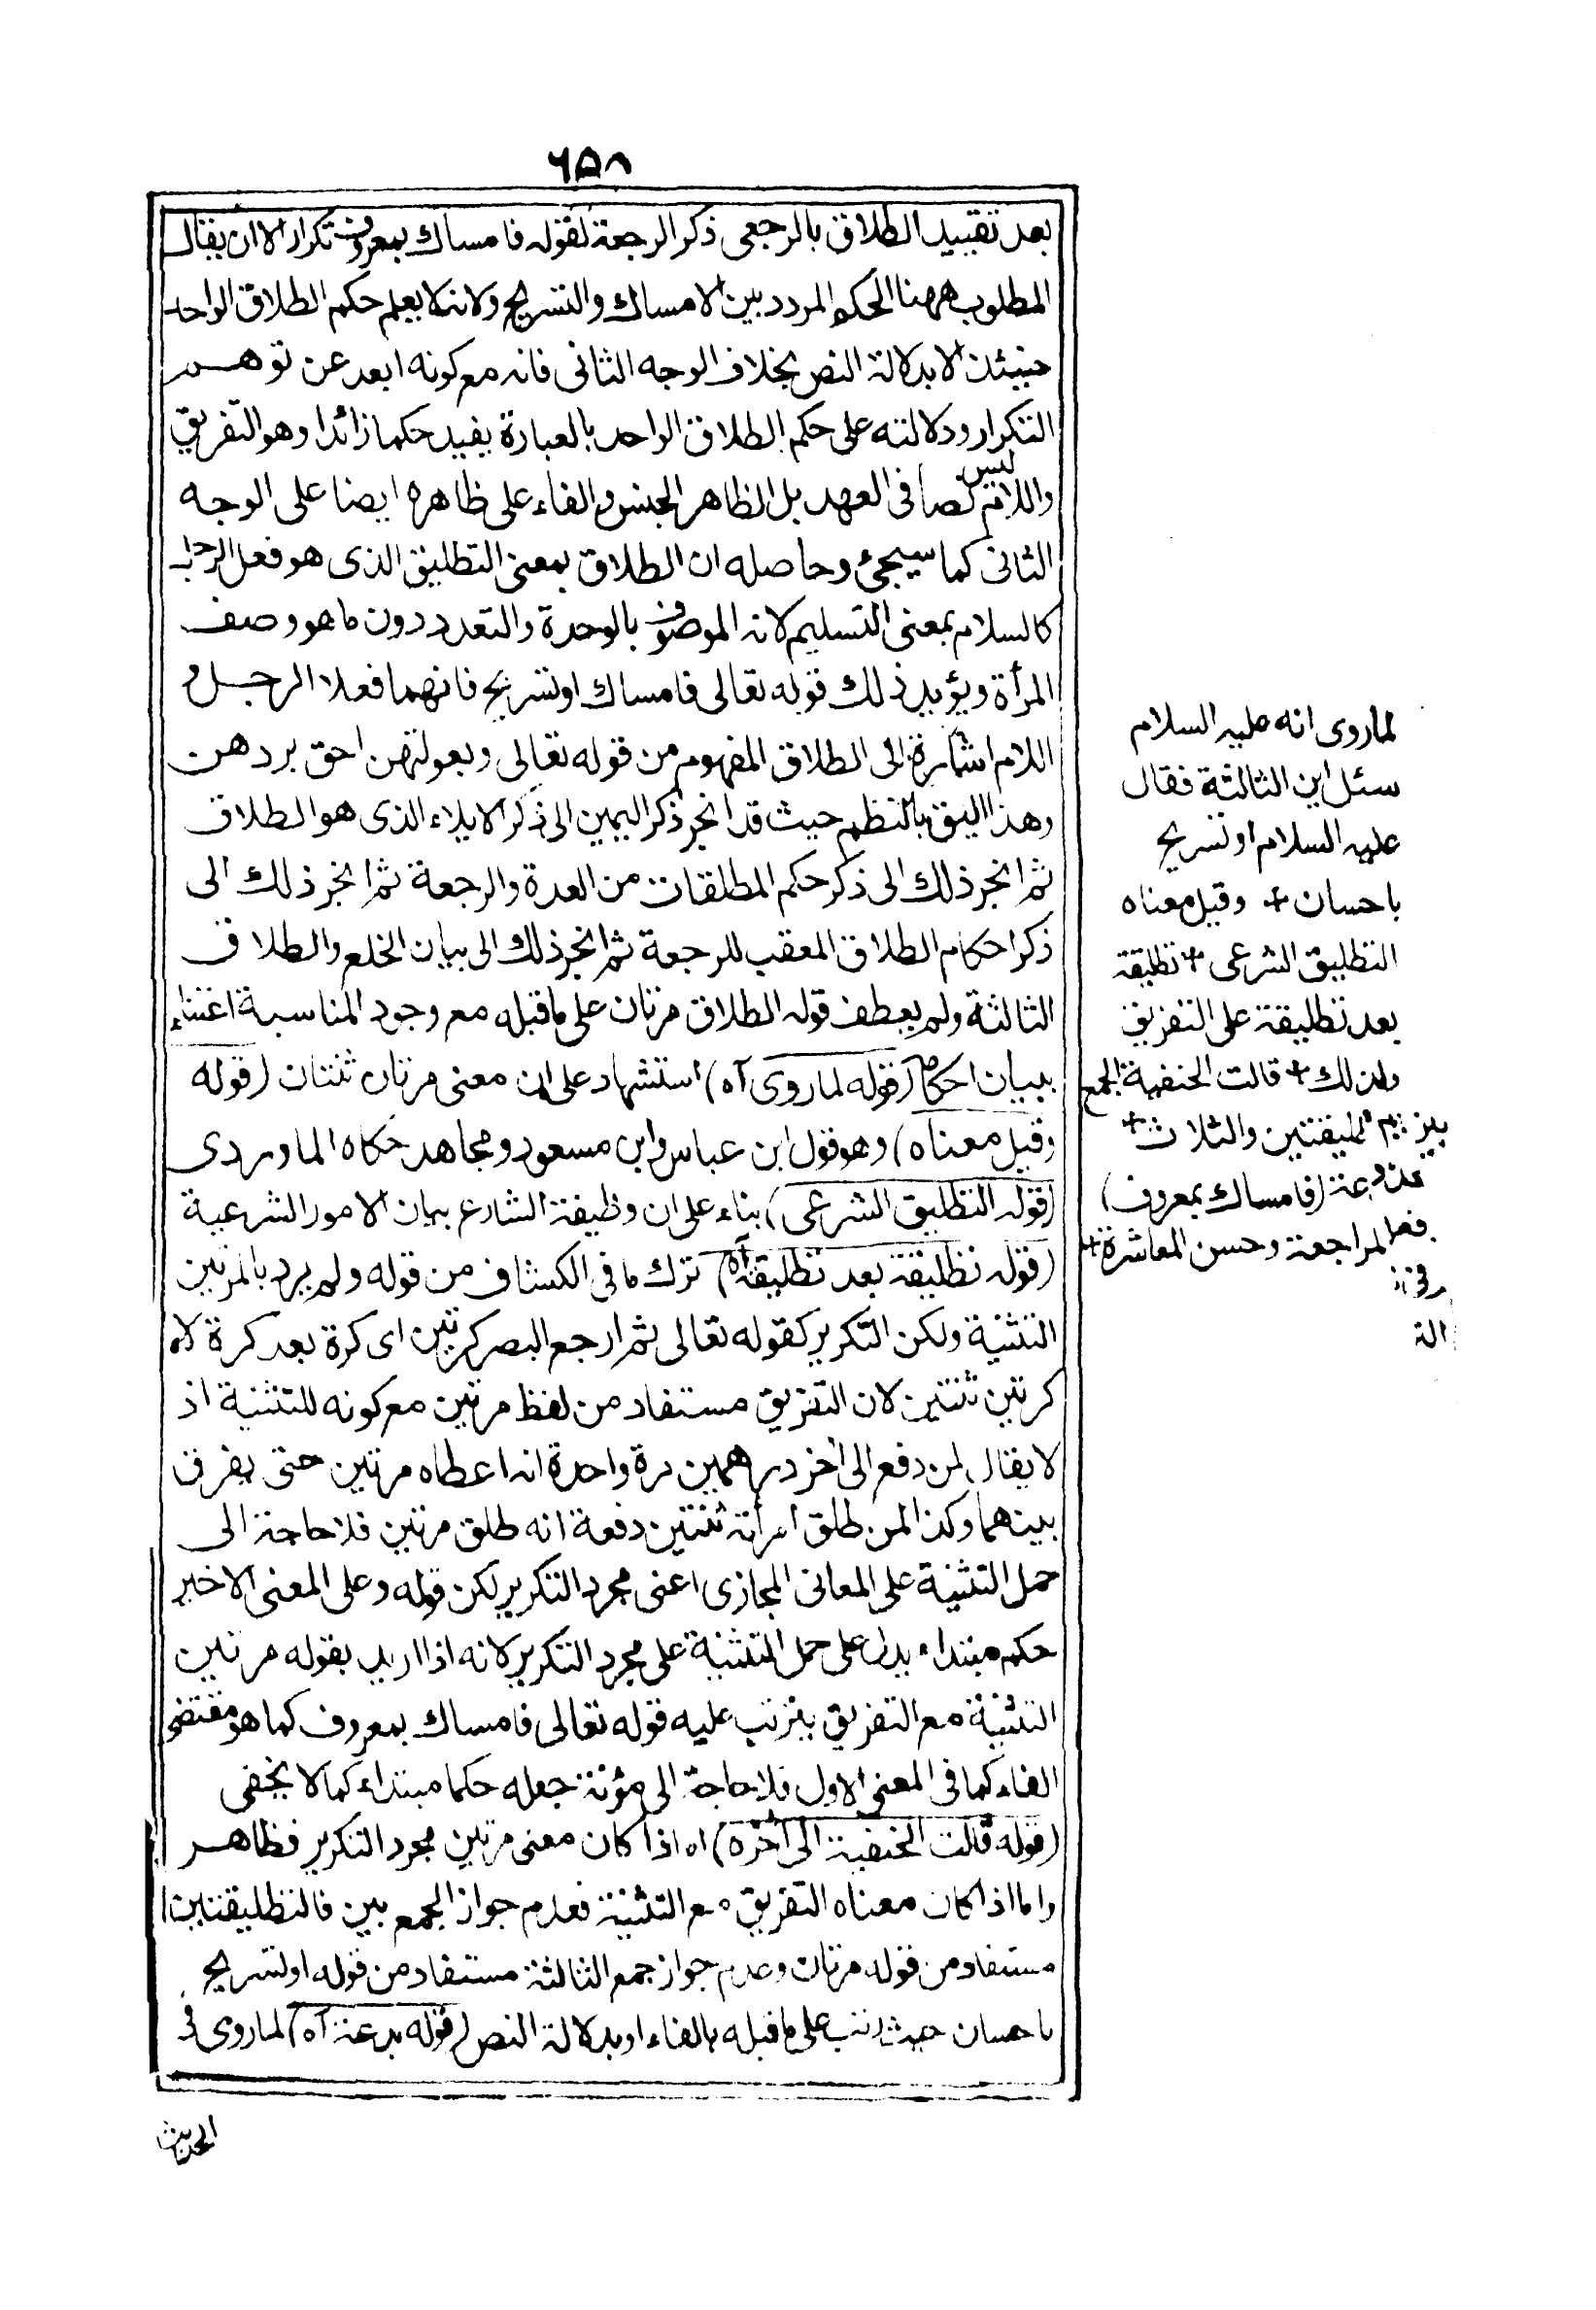 ٦٥٨
بعد تقييد الطلاق بالرجعى ذكر الرجعة لقوله فامساك بمعروف تكرار الا ان يقال
المطلوب ههنا الحكم المردد بين الامساك والتسريح ولانه لا يعلم حكم الطلاق الواحد
حينئذ الا بدلالة النص بخلاف الوجه الثانى فانه مع كونه ابعد عن توهم
التكرار ودلالته على حكم الطلاق الواحد بالعبارة يفيد حكما زائدا وهو التفريق
واللام ليس نصا فى العهد بل الظاهر الجنس والفاء على ظاهره ايضا على الوجه
الثانى كما سيجئ وحاصله ان الطلاق بمعنى التطليق الذى هو فعل الرجل
كالسلام بمعنى التسليم لانه الموصوف بالوحدة والتعدد دون ما هو وصف
المرأة ويؤيد ذلك قوله تعالى فامساك او تسريح فانهما فعلا الرجل و
اللام اشارة الى الطلاق المفهوم من قوله تعالى وبعولتهن احق بردهن
وهذا اليق بالنظم حيث قد انجر ذكر اليمين الى ذكر الايلاء الذى هو الطلاق
ثم انجر ذلك الى ذكر حكم المطلقات من العدة والرجعة ثم انجر ذلك الى
ذكر احكام الطلاق المعقب للرجعة ثم انجر ذلك الى بيان الخلع والطلاق
الثالثة ولم يعطف قوله الطلاق مرتان على ما قبله مع وجود المناسبة اعتناء
ببيان احكام (قوله لما روى آه) استشهاد على ان معنى مرتان ثنتان (قوله
وقيل معناه) وهو قول ابن عباس وابن مسعود ومجاهد حكاه الماوردى
(قوله التطليق الشرعى) بناء على ان وظيفة الشارع بيان الامور الشرعية
(قوله تطليقة بعد تطليقة آه) ترك ما فى الكشاف من قوله ولم يرد بالمرتين
التثنية ولكن التكرير كقوله تعالى ثم ارجع البصر كرتين اى كرة بعد كرة لا
كرتين ثنتين لان التفريق مستفاد من لفظ مرتين مع كونه للتثنية اذ
لا يقال لمن دفع الى اخر درهمين مرة واحدة انه اعطاه مرتين حتى يفرق
بينهما وكذا لمن طلق امرأته ثنتين دفعة انه طلق مرتين فلا حاجة الى
حمل التثنية على المعانى المجازى اعنى مجرد التكرير لكن قوله وعلى المعنى الاخير
حكم مبتداء يدل على حمل التثنية على مجرد التكرير لانه اذا اريد بقوله مرتين
التثنية مع التفريق يترتب عليه قوله تعالى فامساك بمعروف كما هو مقتضى
الفاء كما فى المعنى الاول فلا حاجة الى مؤنة جعله حكما مبتداء كما لا يخفى
(قوله قالت الحنفية الى آخره) اه اذا كان معنى مرتين مجرد التكرير فظاهر
واما اذا كان معناه التفريق مع التثنية فعدم جواز الجمع بين فالتطليقتين
مستفاد من قوله مرتان وعدم جواز جمع الثالثة مستفاد من قوله او تسريح
باحسان حيث رتب على ما قبله بالفاء او بدلالة النص (قوله بدعة آه) لما روى فى
الحديث
لما روى انه عليه السلام
سئل اين الثالثة فقال
عليه السلام او تسريح
باحسان + وقيل معناه
التطليق الشرعى + تطليقة
بعد تطليقة على التفريق
ولذلك + قالت الحنفية الجمع
بين التطليقتين والثلاث +
بدعة (فامساك بمعروف)
المراجعة وحسن المعاشرة +